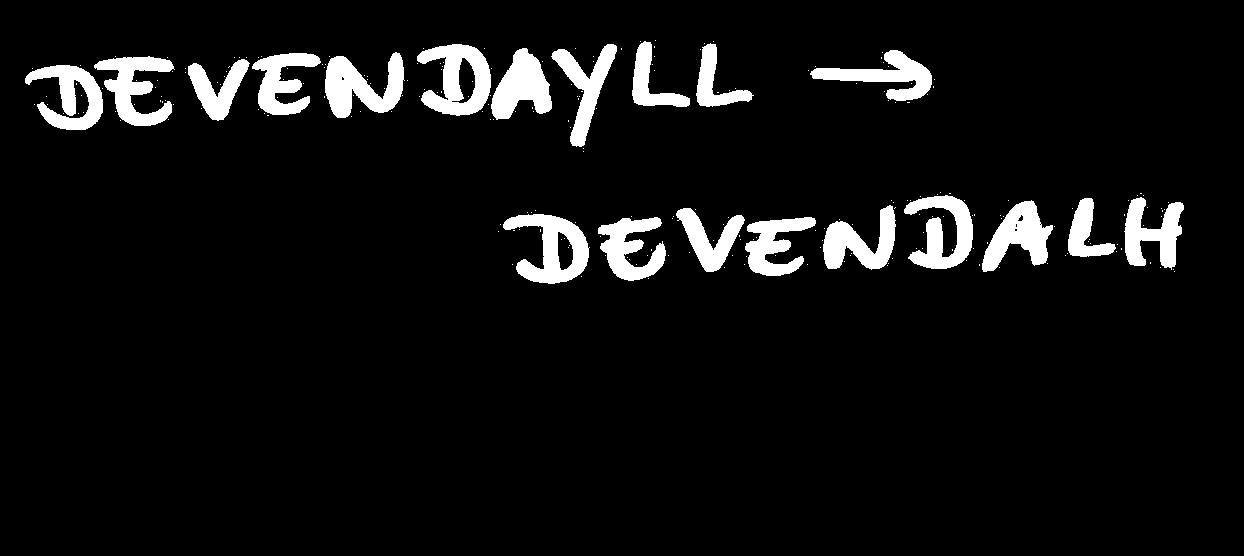 DEVENDAYLL →
DEVENDALH